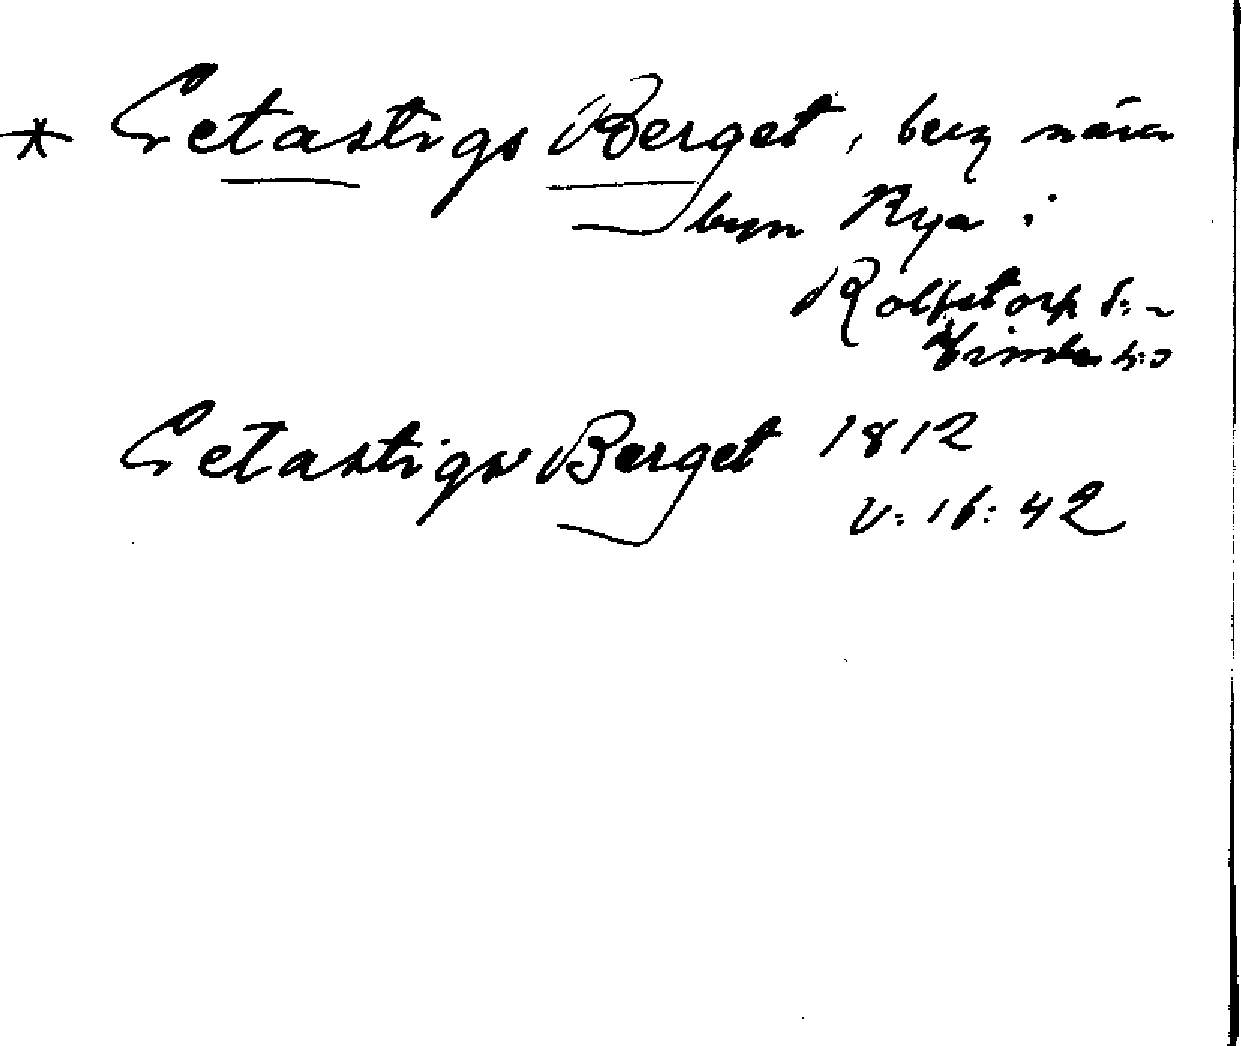 * Getastigs Berget, berg nära
byn Rya i
Rolfstorp s:n
Himle h:d
Getastigs Berget 1812
v: 16: 42